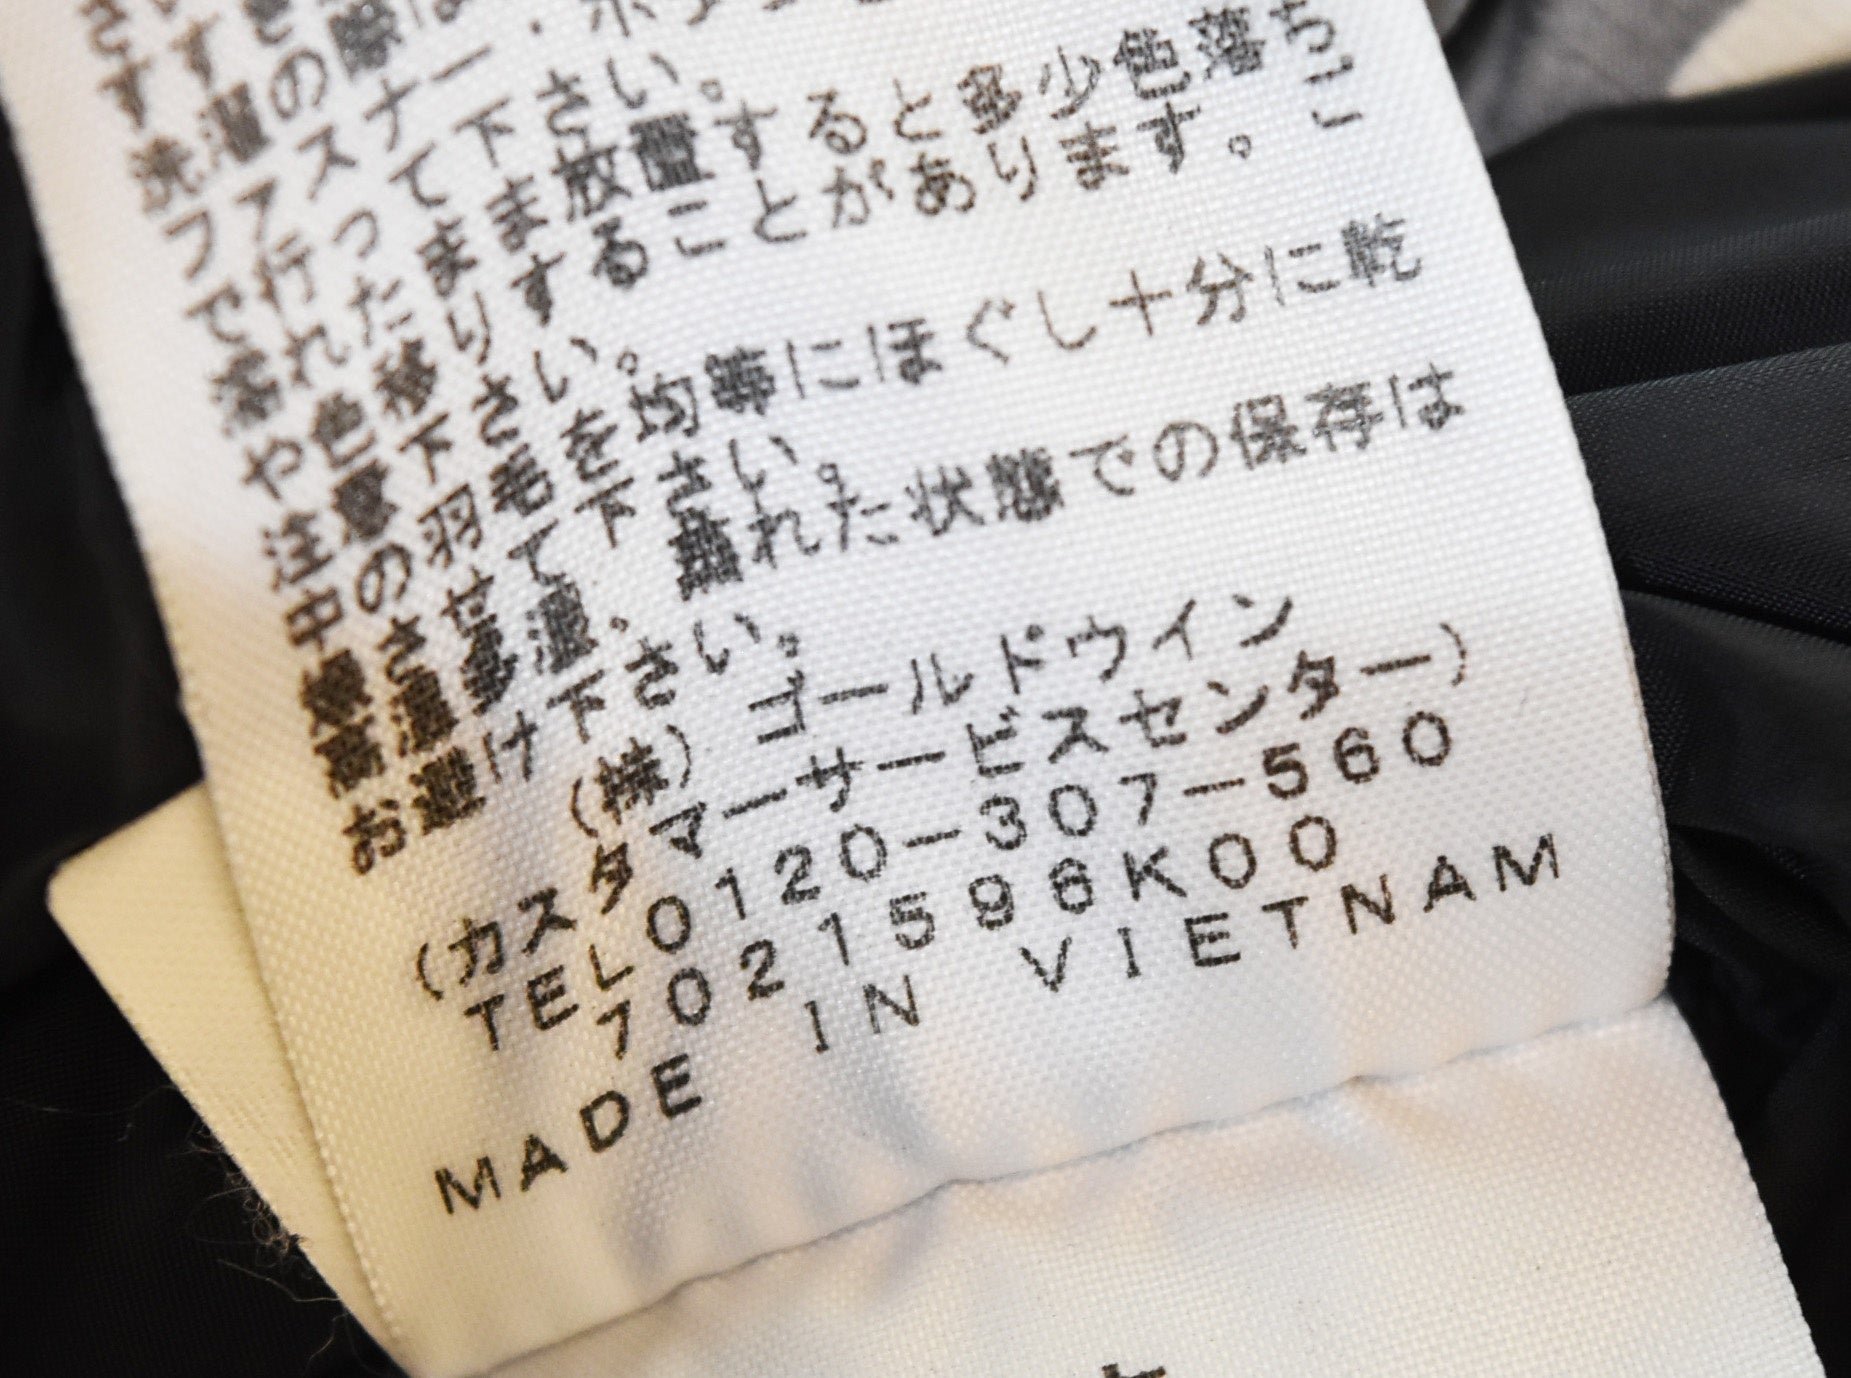 洗濯の際は
ファスナー・ホ
て行って下さい。
濡れたまま放置すると多少色落ち
や色移りすることがあります。ご
注意下さい。
中の羽毛を均等にほぐし十分に乾
燥させて下さい。
高温多湿、蒸れた状態での保存は
お避け下さい。
(株)ゴールドウイン
(カスタマーサービスセンター)
TEL0120-307-560
7021596K00
MADE IN VIETNAM